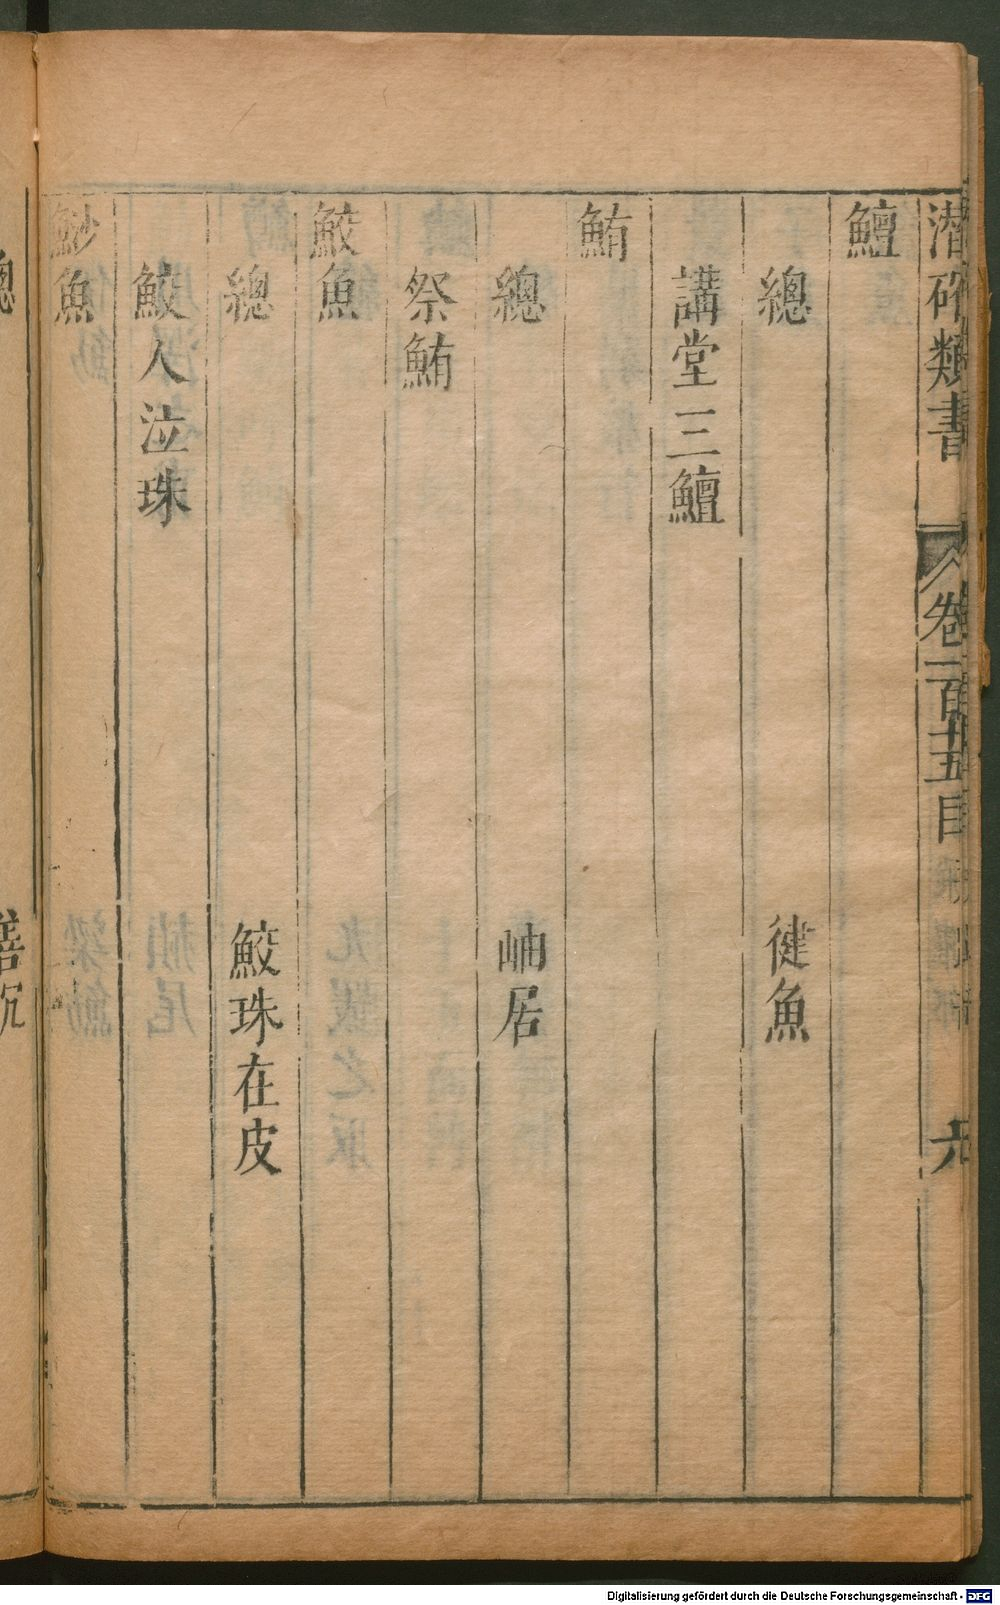 潛確類書 卷一百十五目 九
鱣
總 徤魚
講堂三鱣
鮪
總 岫居
祭鮪
鮫魚
總 鮫珠在皮
鮫人泣珠
魦魚
總 善沉
Digitalisierung gefördert durch die Deutsche Forschungsgemeinschaft - DFG